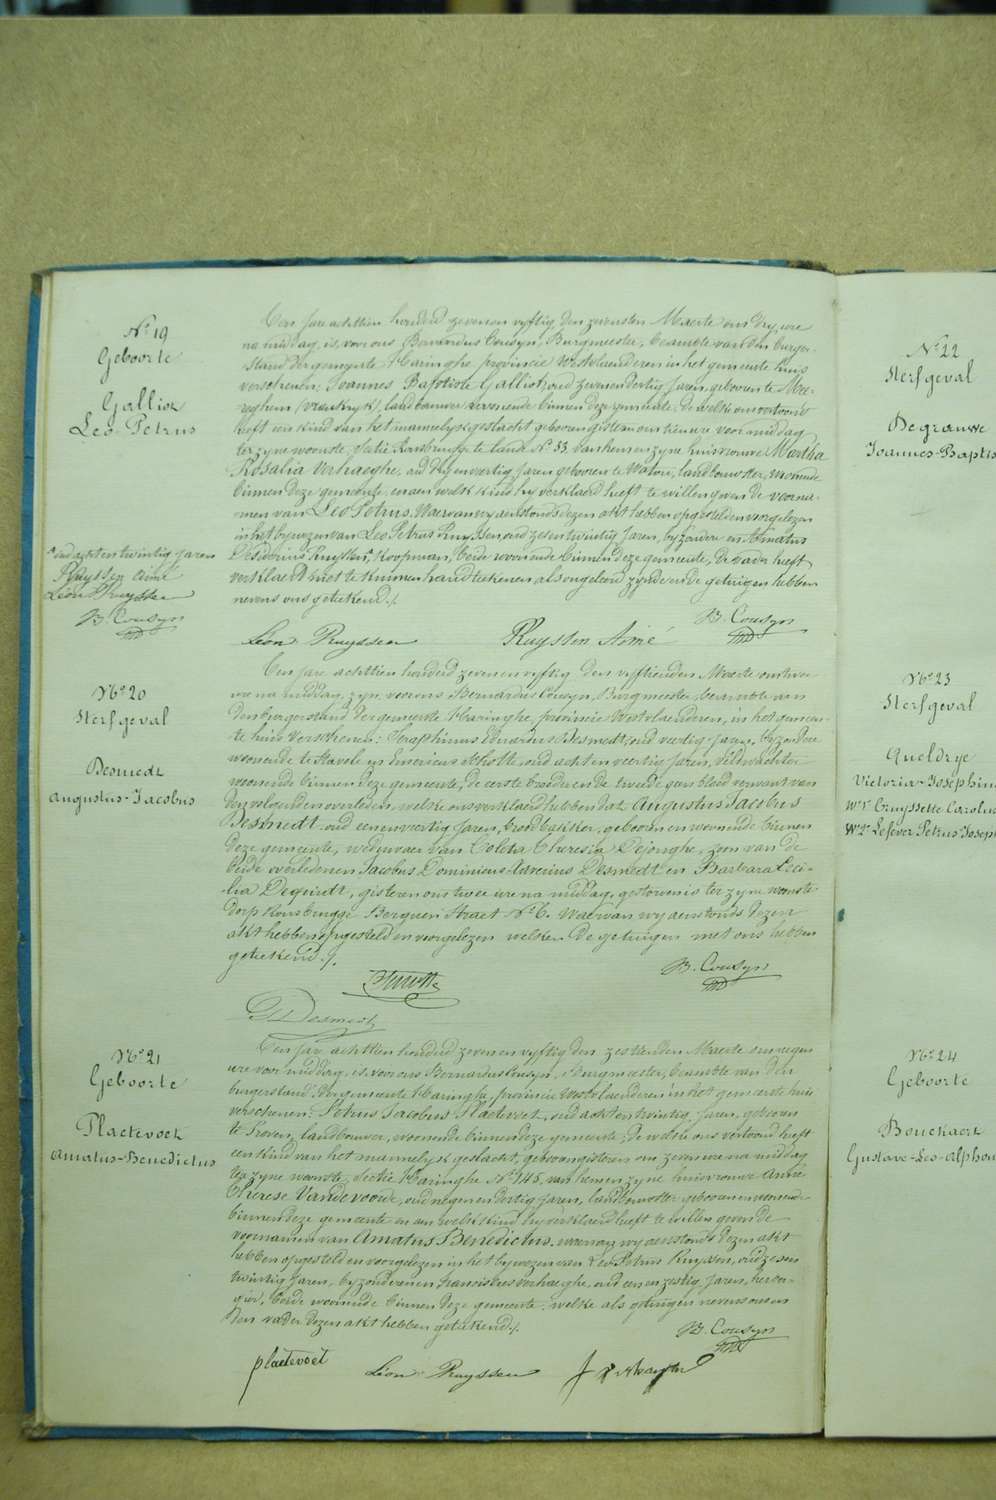 N° 19
Geboorte
Galliot
Leo Petrus
Ten jare achttien honderd zeven en vyftig den zevensten Maerte om dry ure
na middag, is, voor ons Bernardus Cousyn, Burgmeester, beambte van den burger-
stand der gemeente Haringhe provincie Westvlaenderen in het gemeente huis
verschenen, Joannes Baptiste Galliot, oud zeven en dertig Jaren, geboren te
(vrankryk), landbouwer woonende binnen deze gemeente, de welke ons vertoond
heeft een kind van het mannelyk geslacht geboren gisteren om ure voor middag
ter zyne woonste, Sectie Rousbrugge te land N° 53. van hem en zyne huisvrouwe Martha
Rosalia Verhaeghe, oud dry en veertig Jaren geboren te Watou, landbouwster, woonende
binnen deze gemeente, en aen welk kind hy verklaerd heeft te willen geven de voorna-
men van Leo Petrus. Waervan wy aenstonds dezen akt hebben opgesteld en voorgelezen
in het bywezen van Leo Petrus Ruyssen, oud zes en twintig Jaren, byzondere en Amatus
Desiderius Ruyssen, koopman, beide woonende binnen deze gemeente, de vader heeft
verklaerd niet te kunnen handteekenen als ongeleerd zynde en de getuigen hebben
nevens ons geteekend ./.
oud acht en twintig jaren
Ruyssen Aimé
Léon Ruyssen
B. Cousyn
B. Cousyn
Léon Ruyssen Ruyssen Aimé
N° 20
Sterfgeval
Desmedt
Augustus-Jacobus
Ten jare achttien honderd zeven en vyftig den vyftienden Maerte om
ure na middag, zyn, voor ons Bernardus Cousyn, Burgmeester, beambte van
den burgerstand der gemeente Haringhe, provincie Westvlaenderen, in het gemeen-
te huis verschenen: Seraphinus Eduardus Desmedt, oud veertig Jaren, byzondere
woonende te Stavele en oud acht en veertig Jaren, veldwachter
woonende binnen deze gemeente, de eerste broeder en de tweede gen bloed verwant van
den volgenden overleden, welke ons verklaerd hebben dat Augustus Jacobus
Desmedt oud een en veertig Jaren, broodbakker, geboren en woonende binnen
deze gemeente, weduwaer van Coleta Theresia Dejonghe, zoon van de
beide overledenen Jacobus Dominicus Desmedt en Barbara Ceci-
lia Dequidt, gisteren om twee ure na middag, gestorven is ter zyne woonste
dorp Rousbrugge Berguen Straet N° 6. Waervan wy aenstonds dezen
akt hebben opgesteld en voorgelezen welken de getuigen met ons hebben
geteekend ./.
B. Cousyn
Desmedt
N° 21
Geboorte
Plaetevoet
Amatus-Benedictus
Ten jare achttien honderd zeven en vyftig den zestienden Maerte om negen
ure voor middag, is voor ons Bernardus Cousyn, Burgmeester, beambte van den
burgerstand der gemeente Haringhe, provincie Westvlaenderen in het gemeente huis
verschenen: Petrus Jacobus Plaetevoet, oud acht en twintig Jaren, geboren
te Proven, landbouwer, woonende binnen deze gemeente, de welke ons vertoond heeft
een kind van het mannelyk geslacht, geboren gisteren om zeven ure na middag
ter zyne woonste, Sectie Haringhe N° 145, van hem en zyne huisvrouwe Anne
Therese Vandevoorde, oud negen en dertig jaren, landbouwster geboren en woonende
binnen deze gemeente en aen welk kind hy verklaerd heeft te willen geven de
voornamen van Amatus Benedictus. waervan wy aenstonds dezen akt
hebben opgesteld en voorgelezen in het bywezen van Leo Petrus Ruyssen, oud zes en
twintig Jaren, byzondere en Franciscus Verhaeghe, oud een en zestig Jaren, hoeve-
nier, beide woonende binnen deze gemeente, welke als getuigen nevens ons en
den vader dezen akt hebben geteekend ./.
B. Cousyn
plaetevoet Léon Ruyssen
N° 22
Sterfgeval
Degrauwe
Joannes-Baptis
N° 23
Sterfgeval
Queldrye
Victoria-Josephin
Wᵉ 1ᵉ Cruyssette Carolus
Wᵉ 2ᵉ Lefever Petrus-Joseph
N° 24
Geboorte
Bouckaert
Gustave-Leo-Alphon